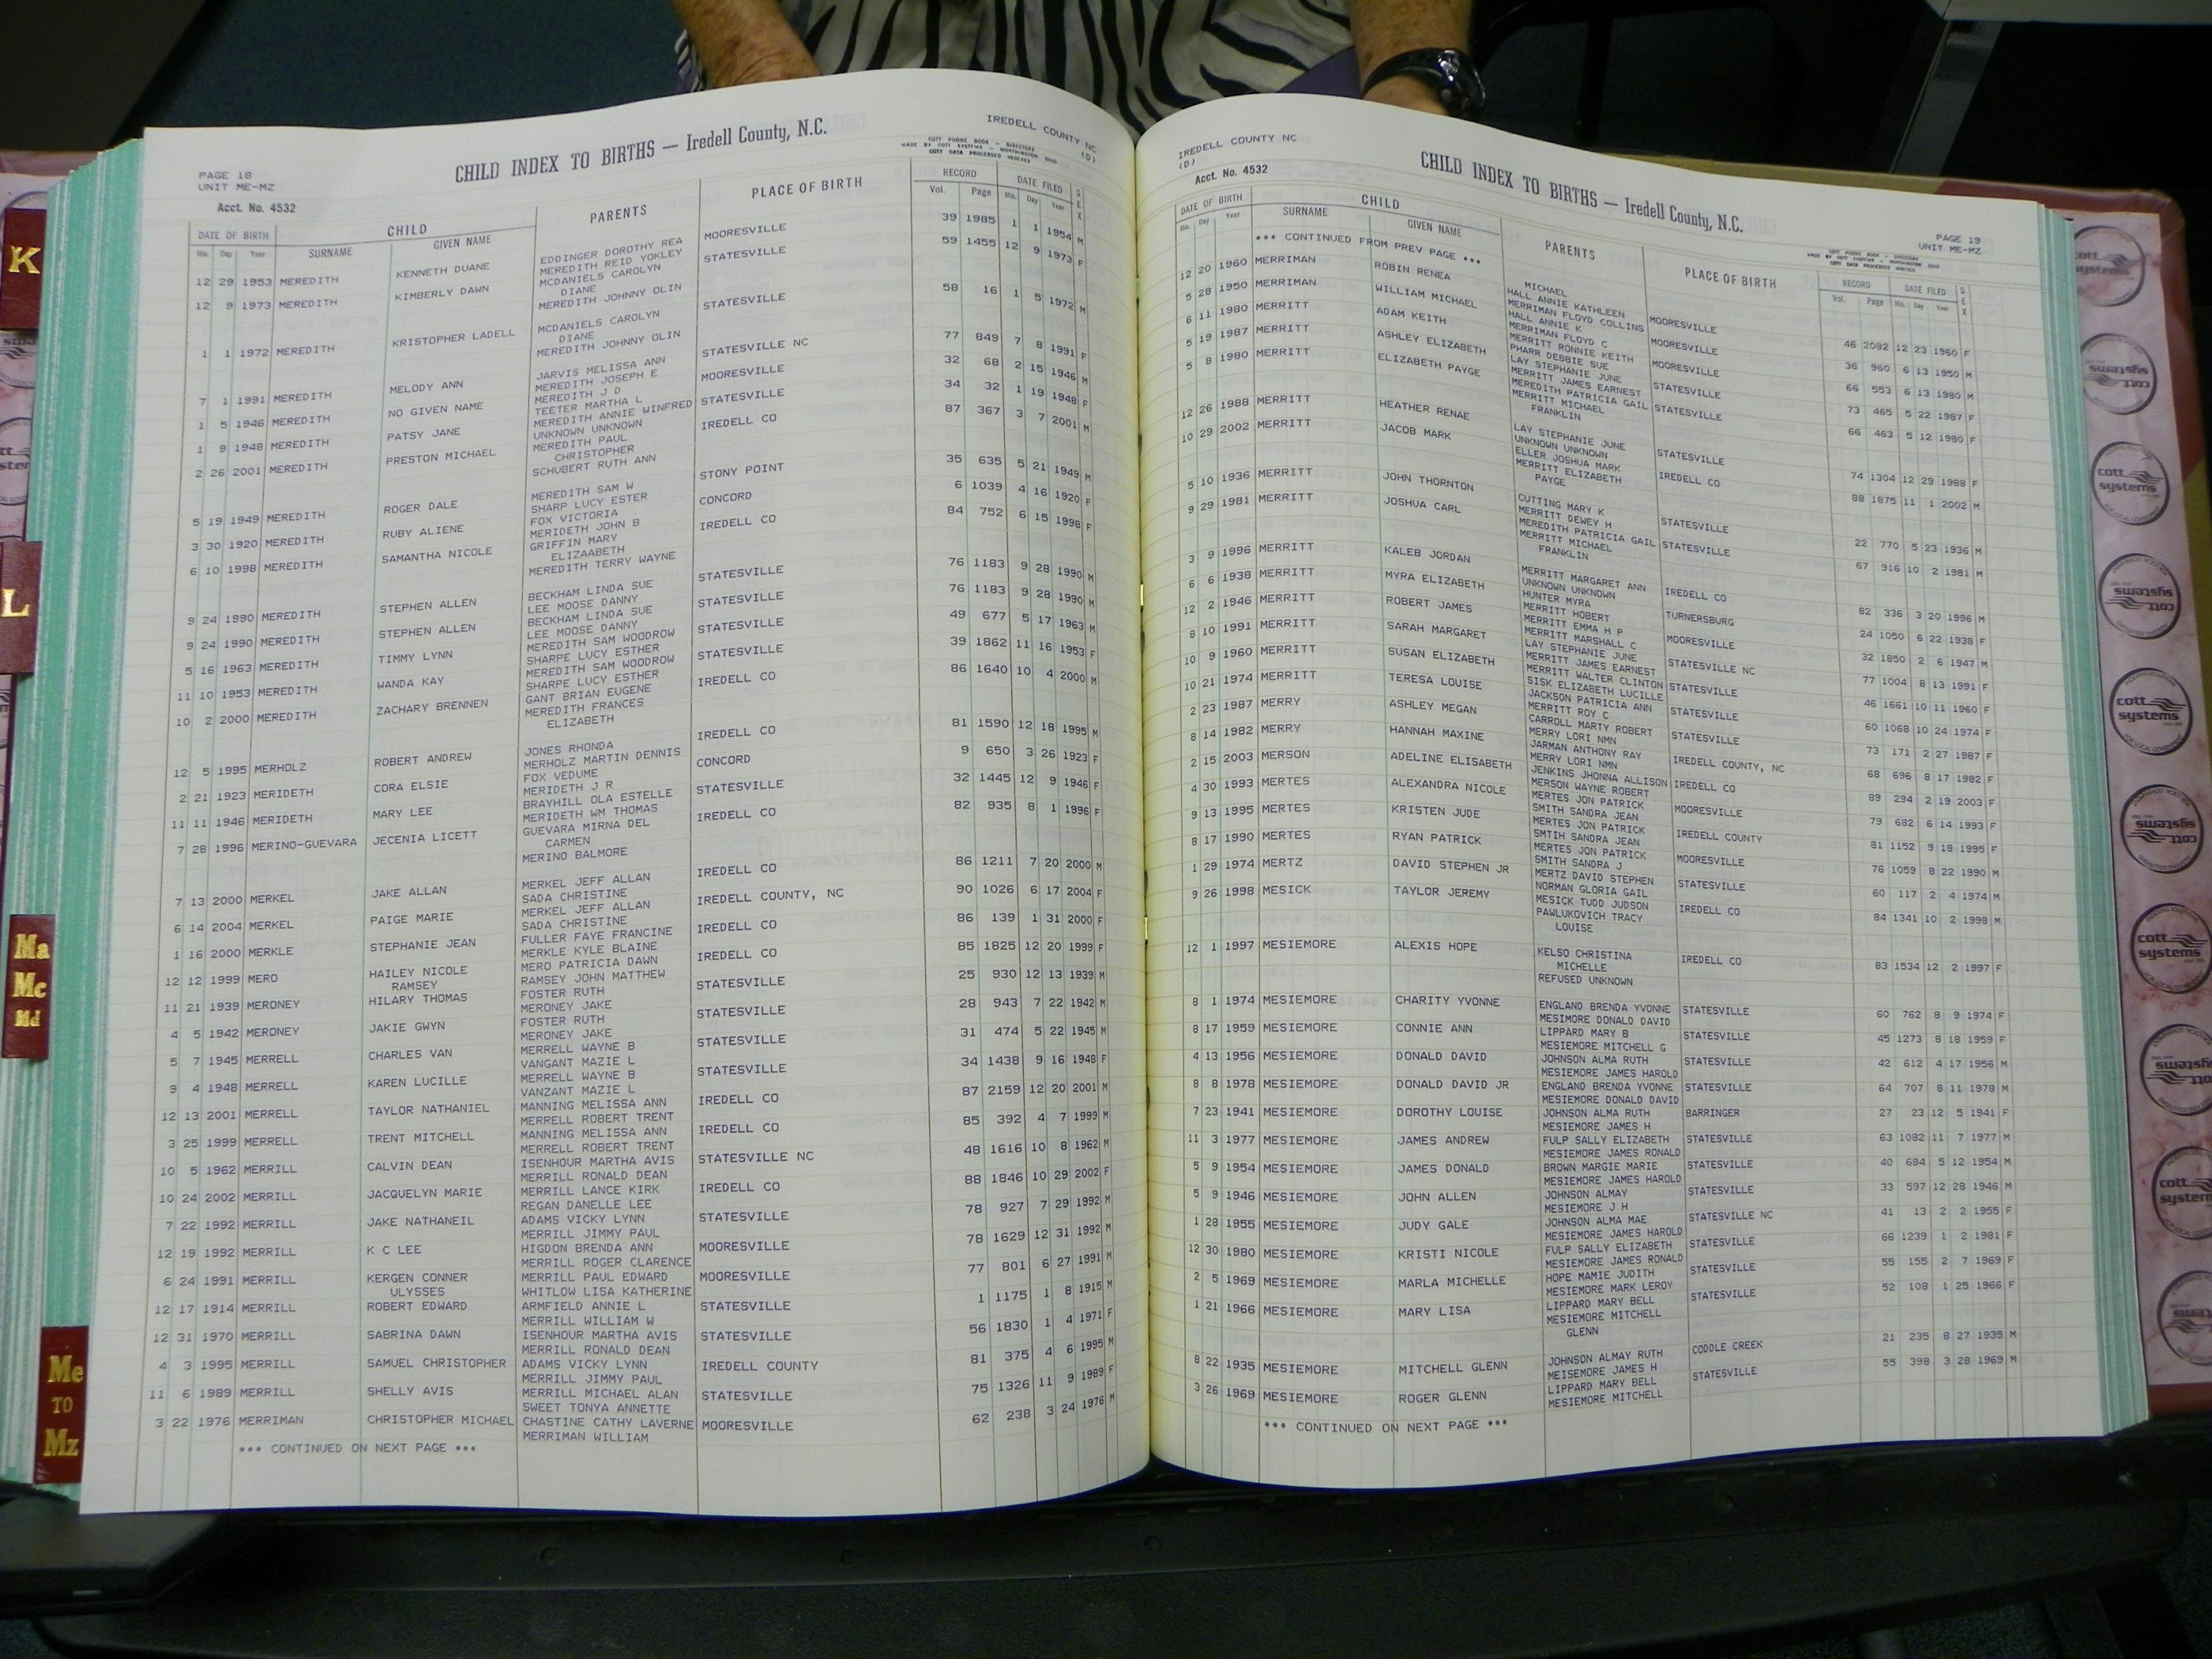 CHILD INDEX TO BIRTHS — Iredell County, N.C.
IREDELL COUNTY NC
(D)
COTT PHONE BOOK - DIRECTORY
MADE BY COTT SYSTEMS - WORTHINGTON, OHIO
COTT DATA PROCESSED INDEXES
PAGE 18
UNIT ME-MZ
Acct. No. 4532
DATE OF BIRTH CHILD PARENTS PLACE OF BIRTH RECORD DATE FILED SEX
Mo. Day Year SURNAME GIVEN NAME Vol. Page Mo. Day Year
12 29 1953 MEREDITH KENNETH DUANE EDDINGER DOROTHY REA MOORESVILLE 39 1985 1 1 1954 M
MEREDITH REID YOKLEY
12 9 1973 MEREDITH KIMBERLY DAWN MCDANIELS CAROLYN STATESVILLE 59 1455 12 9 1973 F
DIANE
MEREDITH JOHNNY OLIN
1 1 1972 MEREDITH KRISTOPHER LADELL MCDANIELS CAROLYN STATESVILLE 58 16 1 5 1972 M
DIANE
MEREDITH JOHNNY OLIN
7 1 1991 MEREDITH MELODY ANN JARVIS MELISSA ANN STATESVILLE NC 77 849 7 8 1991 F
MEREDITH JOSEPH E
1 5 1946 MEREDITH NO GIVEN NAME MEREDITH J D MOORESVILLE 32 68 2 15 1946 M
TEETER MARTHA L
1 9 1948 MEREDITH PATSY JANE MEREDITH ANNIE WINFRED STATESVILLE 34 32 1 19 1948 F
UNKNOWN UNKNOWN
2 26 2001 MEREDITH PRESTON MICHAEL MEREDITH PAUL IREDELL CO 87 367 3 7 2001 M
CHRISTOPHER
SCHUBERT RUTH ANN
5 19 1949 MEREDITH ROGER DALE MEREDITH SAM W STONY POINT 35 635 5 21 1949 M
SHARP LUCY ESTER
3 30 1920 MEREDITH RUBY ALIENE FOX VICTORIA CONCORD 6 1039 4 16 1920 F
MERIDETH JOHN B
6 10 1998 MEREDITH SAMANTHA NICOLE GRIFFIN MARY IREDELL CO 84 752 6 15 1998 F
ELIZAABETH
MEREDITH TERRY WAYNE
9 24 1990 MEREDITH STEPHEN ALLEN BECKHAM LINDA SUE STATESVILLE 76 1183 9 28 1990 M
LEE MOOSE DANNY
9 24 1990 MEREDITH STEPHEN ALLEN BECKHAM LINDA SUE STATESVILLE 76 1183 9 28 1990 M
LEE MOOSE DANNY
5 16 1963 MEREDITH TIMMY LYNN MEREDITH SAM WOODROW STATESVILLE 49 677 5 17 1963 M
SHARPE LUCY ESTHER
11 10 1953 MEREDITH WANDA KAY MEREDITH SAM WOODROW STATESVILLE 39 1862 11 16 1953 F
SHARPE LUCY ESTHER
10 2 2000 MEREDITH ZACHARY BRENNEN GANT BRIAN EUGENE IREDELL CO 86 1640 10 4 2000 M
MEREDITH FRANCES
ELIZABETH
12 5 1995 MERHOLZ ROBERT ANDREW JONES RHONDA IREDELL CO 81 1590 12 18 1995 M
MERHOLZ MARTIN DENNIS
2 21 1923 MERIDETH CORA ELSIE FOX VEDUME CONCORD 9 650 3 26 1923 F
MERIDETH J R
11 11 1946 MERIDETH MARY LEE BRAYHILL OLA ESTELLE STATESVILLE 32 1445 12 9 1946 F
MERIDETH WM THOMAS
7 28 1996 MERINO-GUEVARA JECENIA LICETT GUEVARA MIRNA DEL IREDELL CO 82 935 8 1 1996 F
CARMEN
MERINO BALMORE
7 13 2000 MERKEL JAKE ALLAN MERKEL JEFF ALLAN IREDELL CO 86 1211 7 20 2000 M
SADA CHRISTINE
6 14 2004 MERKEL PAIGE MARIE MERKEL JEFF ALLAN IREDELL COUNTY, NC 90 1026 6 17 2004 F
SADA CHRISTINE
1 16 2000 MERKLE STEPHANIE JEAN FULLER FAYE FRANCINE IREDELL CO 86 139 1 31 2000 F
MERKLE KYLE BLAINE
12 12 1999 MERO HAILEY NICOLE MERO PATRICIA DAWN IREDELL CO 85 1825 12 20 1999 F
RAMSEY RAMSEY JOHN MATTHEW
11 21 1939 MERONEY HILARY THOMAS FOSTER RUTH STATESVILLE 25 930 12 13 1939 M
MERONEY JAKE
4 5 1942 MERONEY JAKIE GWYN FOSTER RUTH STATESVILLE 28 943 7 22 1942 M
MERONEY JAKE
5 7 1945 MERRELL CHARLES VAN MERRELL WAYNE B STATESVILLE 31 474 5 22 1945 M
VANGANT MAZIE L
9 4 1948 MERRELL KAREN LUCILLE MERRELL WAYNE B STATESVILLE 34 1438 9 16 1948 F
VANZANT MAZIE L
12 13 2001 MERRELL TAYLOR NATHANIEL MANNING MELISSA ANN IREDELL CO 87 2159 12 20 2001 M
MERRELL ROBERT TRENT
3 25 1999 MERRELL TRENT MITCHELL MANNING MELISSA ANN IREDELL CO 85 392 4 7 1999 M
MERRELL ROBERT TRENT
10 5 1962 MERRILL CALVIN DEAN ISENHOUR MARTHA AVIS STATESVILLE NC 48 1616 10 8 1962 M
MERRILL RONALD DEAN
10 24 2002 MERRILL JACQUELYN MARIE MERRILL LANCE KIRK IREDELL CO 88 1846 10 29 2002 F
REGAN DANELLE LEE
7 22 1992 MERRILL JAKE NATHANEIL ADAMS VICKY LYNN STATESVILLE 78 927 7 29 1992 M
MERRILL JIMMY PAUL
12 19 1992 MERRILL K C LEE HIGDON BRENDA ANN MOORESVILLE 78 1629 12 31 1992 M
MERRILL ROGER CLARENCE
6 24 1991 MERRILL KERGEN CONNER MERRILL PAUL EDWARD MOORESVILLE 77 801 6 27 1991 M
ULYSSES WHITLOW LISA KATHERINE
12 17 1914 MERRILL ROBERT EDWARD ARMFIELD ANNIE L STATESVILLE 1 1175 1 8 1915 M
MERRILL WILLIAM W
12 31 1970 MERRILL SABRINA DAWN ISENHOUR MARTHA AVIS STATESVILLE 56 1830 1 4 1971 F
MERRILL RONALD DEAN
4 3 1995 MERRILL SAMUEL CHRISTOPHER ADAMS VICKY LYNN IREDELL COUNTY 81 375 4 6 1995 M
MERRILL JIMMY PAUL
11 6 1989 MERRILL SHELLY AVIS MERRILL MICHAEL ALAN STATESVILLE 75 1326 11 9 1989 F
SWEET TONYA ANNETTE
3 22 1976 MERRIMAN CHRISTOPHER MICHAEL CHASTINE CATHY LAVERNE MOORESVILLE 62 238 3 24 1976 M
MERRIMAN WILLIAM
*** CONTINUED ON NEXT PAGE ***
IREDELL COUNTY NC
(D)
Acct. No. 4532
CHILD INDEX TO BIRTHS — Iredell County, N.C.
PAGE 19
UNIT ME-MZ
COTT PHONE BOOK - DIRECTORY
MADE BY COTT SYSTEMS - WORTHINGTON, OHIO
COTT DATA PROCESSED INDEXES
DATE OF BIRTH CHILD PARENTS PLACE OF BIRTH RECORD DATE FILED SEX
Mo. Day Year SURNAME GIVEN NAME Vol. Page Mo. Day Year
*** CONTINUED FROM PREV PAGE ***
MICHAEL
12 20 1960 MERRIMAN ROBIN RENEA HALL ANNIE KATHLEEN MOORESVILLE 46 2092 12 23 1960 F
MERRIMAN FLOYD COLLINS
5 28 1950 MERRIMAN WILLIAM MICHAEL HALL ANNIE K MOORESVILLE 36 960 6 13 1950 M
MERRIMAN FLOYD C
6 11 1980 MERRITT ADAM KEITH MERRITT RONNIE KEITH MOORESVILLE 66 553 6 13 1980 M
PHARR DEBBIE SUE
5 19 1987 MERRITT ASHLEY ELIZABETH LAY STEPHANIE JUNE STATESVILLE 73 465 5 22 1987 F
MERRITT JAMES EARNEST
5 8 1980 MERRITT ELIZABETH PAYGE MEREDITH PATRICIA GAIL STATESVILLE 66 463 5 12 1980 F
MERRITT MICHAEL
FRANKLIN
12 26 1988 MERRITT HEATHER RENAE LAY STEPHANIE JUNE STATESVILLE 74 1304 12 29 1988 F
UNKNOWN UNKNOWN
10 29 2002 MERRITT JACOB MARK ELLER JOSHUA MARK IREDELL CO 88 1875 11 1 2002 M
MERRITT ELIZABETH
PAYGE
5 10 1936 MERRITT JOHN THORNTON CUTTING MARY K STATESVILLE 22 770 5 23 1936 M
MERRITT DEWEY H
9 29 1981 MERRITT JOSHUA CARL MEREDITH PATRICIA GAIL STATESVILLE 67 916 10 2 1981 M
MERRITT MICHAEL
FRANKLIN
3 9 1996 MERRITT KALEB JORDAN MERRITT MARGARET ANN IREDELL CO 82 336 3 20 1996 M
UNKNOWN UNKNOWN
6 6 1938 MERRITT MYRA ELIZABETH HUNTER MYRA TURNERSBURG 24 1050 6 22 1938 F
MERRITT HOBERT
12 2 1946 MERRITT ROBERT JAMES MERRITT EMMA H P MOORESVILLE 32 1850 2 6 1947 M
MERRITT MARSHALL C
8 10 1991 MERRITT SARAH MARGARET LAY STEPHANIE JUNE STATESVILLE NC 77 1004 8 13 1991 F
MERRITT JAMES EARNEST
10 9 1960 MERRITT SUSAN ELIZABETH MERRITT WALTER CLINTON STATESVILLE 46 1661 10 11 1960 F
SISK ELIZABETH LUCILLE
10 21 1974 MERRITT TERESA LOUISE JACKSON PATRICIA ANN STATESVILLE 60 1068 10 24 1974 F
MERRITT ROY C
2 23 1987 MERRY ASHLEY MEGAN CARROLL MARTY ROBERT STATESVILLE 73 171 2 27 1987 F
MERRY LORI NMN
8 14 1982 MERRY HANNAH MAXINE JARMAN ANTHONY RAY IREDELL COUNTY, NC 68 696 8 17 1982 F
MERRY LORI NMN
2 15 2003 MERSON ADELINE ELISABETH JENKINS JHONNA ALLISON IREDELL CO 89 294 2 19 2003 F
MERSON WAYNE ROBERT
4 30 1993 MERTES ALEXANDRA NICOLE MERTES JON PATRICK MOORESVILLE 79 682 6 14 1993 F
SMITH SANDRA JEAN
9 13 1995 MERTES KRISTEN JUDE MERTES JON PATRICK IREDELL COUNTY 81 1152 9 18 1995 F
SMTIH SANDRA JEAN
8 17 1990 MERTES RYAN PATRICK MERTES JON PATRICK MOORESVILLE 76 1059 8 22 1990 M
SMITH SANDRA J
1 29 1974 MERTZ DAVID STEPHEN JR MERTZ DAVID STEPHEN STATESVILLE 60 117 2 4 1974 M
NORMAN GLORIA GAIL
9 26 1998 MESICK TAYLOR JEREMY MESICK TUDD JUDSON IREDELL CO 84 1341 10 2 1998 M
PAWLUKOVICH TRACY
LOUISE
12 1 1997 MESIEMORE ALEXIS HOPE KELSO CHRISTINA IREDELL CO 83 1534 12 2 1997 F
MICHELLE
REFUSED UNKNOWN
8 1 1974 MESIEMORE CHARITY YVONNE ENGLAND BRENDA YVONNE STATESVILLE 60 762 8 9 1974 F
MESIMORE DONALD DAVID
8 17 1959 MESIEMORE CONNIE ANN LIPPARD MARY B STATESVILLE 45 1273 8 18 1959 F
MESIEMORE MITCHELL G
4 13 1956 MESIEMORE DONALD DAVID JOHNSON ALMA RUTH STATESVILLE 42 612 4 17 1956 M
MESIEMORE JAMES HAROLD
8 8 1978 MESIEMORE DONALD DAVID JR ENGLAND BRENDA YVONNE STATESVILLE 64 707 8 11 1978 M
MESIEMORE DONALD DAVID
7 23 1941 MESIEMORE DOROTHY LOUISE JOHNSON ALMA RUTH BARRINGER 27 23 12 5 1941 F
MESIEMORE JAMES H
11 3 1977 MESIEMORE JAMES ANDREW FULP SALLY ELIZABETH STATESVILLE 63 1082 11 7 1977 M
MESIEMORE JAMES RONALD
5 9 1954 MESIEMORE JAMES DONALD BROWN MARGIE MARIE STATESVILLE 40 684 5 12 1954 M
MESIEMORE JAMES HAROLD
5 9 1946 MESIEMORE JOHN ALLEN JOHNSON ALMAY STATESVILLE 33 597 12 28 1946 M
MESIEMORE J H
1 28 1955 MESIEMORE JUDY GALE JOHNSON ALMA MAE STATESVILLE NC 41 13 2 2 1955 F
MESIEMORE JAMES HAROLD
12 30 1980 MESIEMORE KRISTI NICOLE FULP SALLY ELIZABETH STATESVILLE 66 1239 1 2 1981 F
MESIEMORE JAMES RONALD
2 5 1969 MESIEMORE MARLA MICHELLE HOPE MAMIE JUDITH STATESVILLE 55 155 2 7 1969 F
MESIEMORE MARK LEROY
1 21 1966 MESIEMORE MARY LISA LIPPARD MARY BELL STATESVILLE 52 108 1 25 1966 F
MESIEMORE MITCHELL
GLENN
8 22 1935 MESIEMORE MITCHELL GLENN JOHNSON ALMAY RUTH CODDLE CREEK 21 235 8 27 1935 M
MEISEMORE JAMES H
3 26 1969 MESIEMORE ROGER GLENN LIPPARD MARY BELL STATESVILLE 55 398 3 28 1969 M
MESIEMORE MITCHELL
*** CONTINUED ON NEXT PAGE ***
K
L
Ma
Mc
Md
Me
TO
Mz
cott
systems
cott
systems
cott
systems
cott
systems